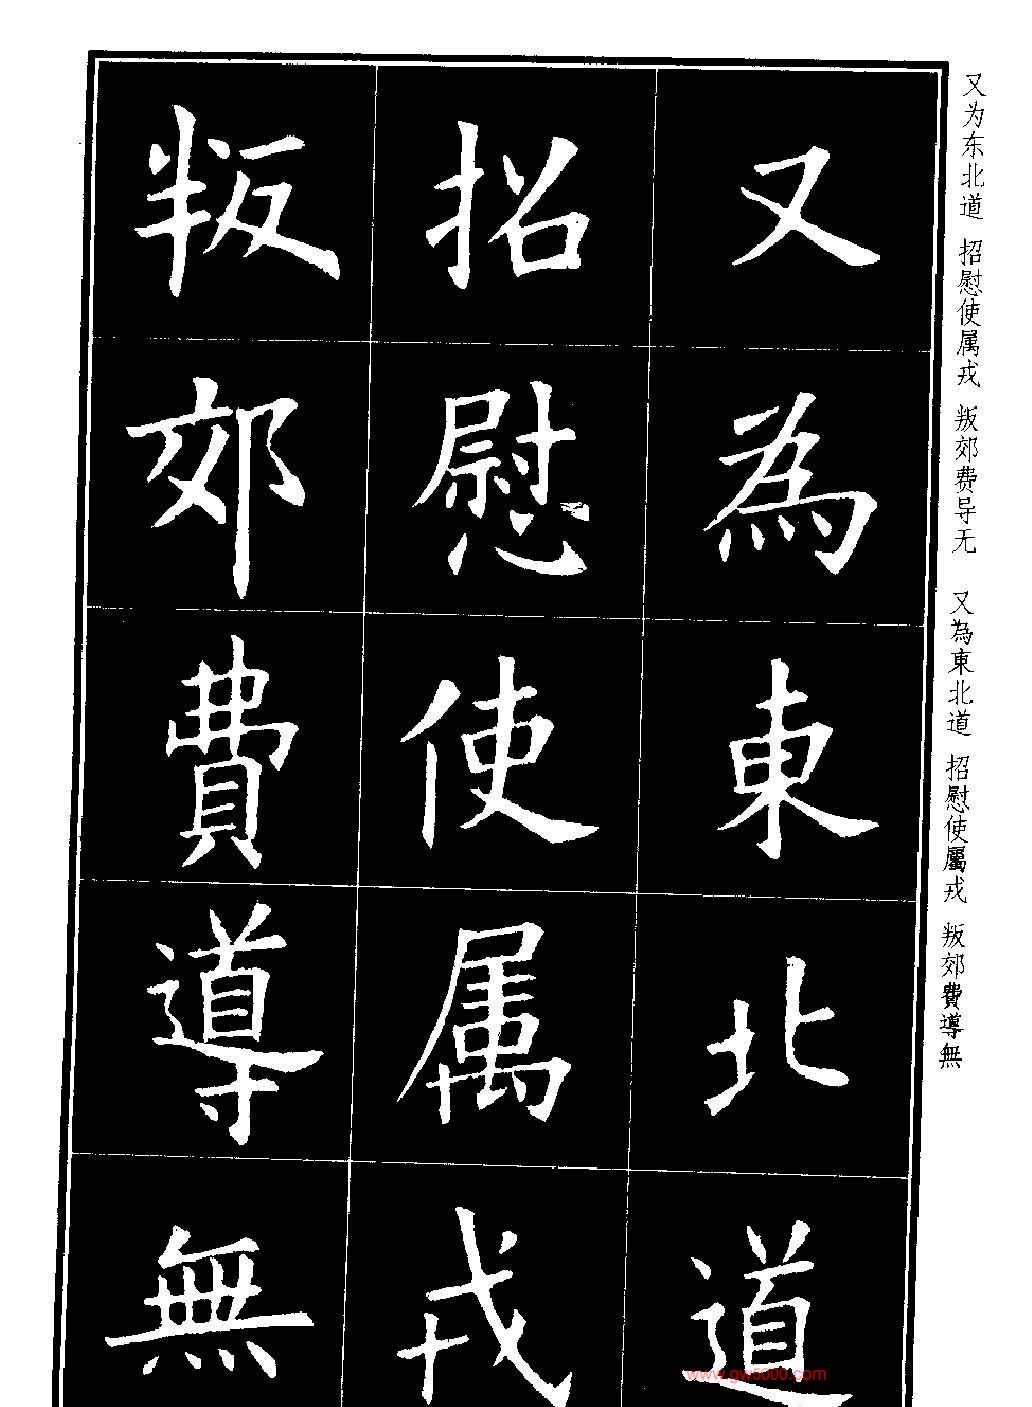 又为东北道 招慰使属戎 叛郊费导无
又為東北道 招慰使屬戎 叛郊費導無
又為東北道
招慰使属戎
叛郊費導無
www.gw5000.com